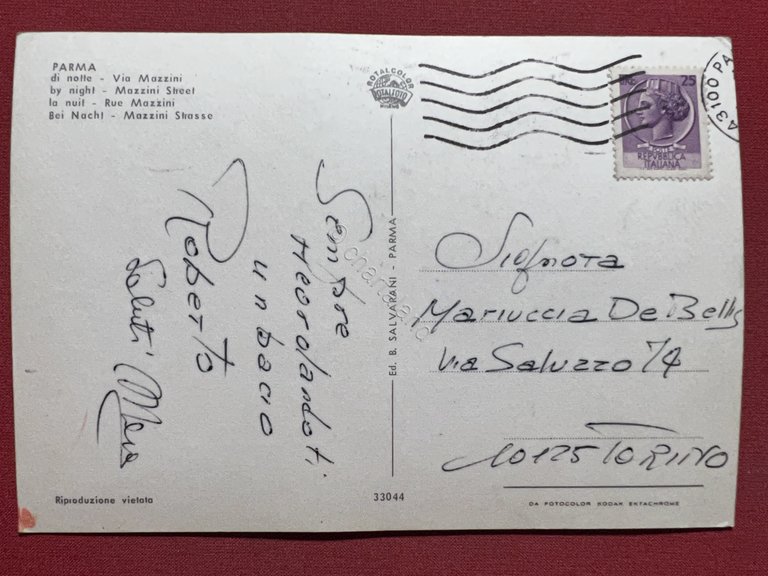 PARMA
di notte - Via Mazzini
by night - Mazzini Street
la nuit - Rue Mazzini
Bei Nacht - Mazzini Strasse
ROTALCOLOR
ROTALFOTO
MILANO
25
POSTE
REPVBBLICA
ITALIANA
43100 PA
Sempre
ricordandoti
un bacio
Roberto
Saluti
Ed. B. SALVARANI - PARMA
Signora
Mariuccia De Bellis
Via Saluzzo 74
10125 TORINO
Riproduzione vietata
33044
DA FOTOCOLOR KODAK EKTACHROME